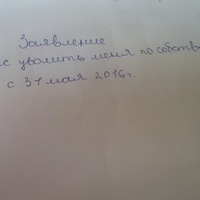 Заявление
с уволить меня по собств
с 31 мая 2016г.